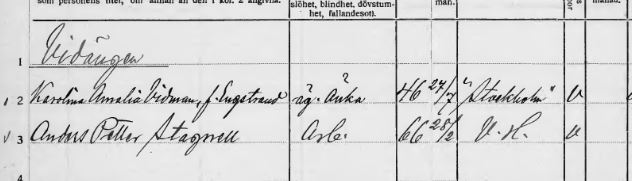 som personens titel, om annan än den i kol. 2 angivna.
slöhet, blindhet, dövstum-
het, fallandesot).
män. månad.
1 Vidängen
2 Karolina Amalia Vidman, f. Engstrand äg. Änka 46 27/7 "Stockholm" v
3 Anders Petter Arb. 66 28/2 V. H. v
4